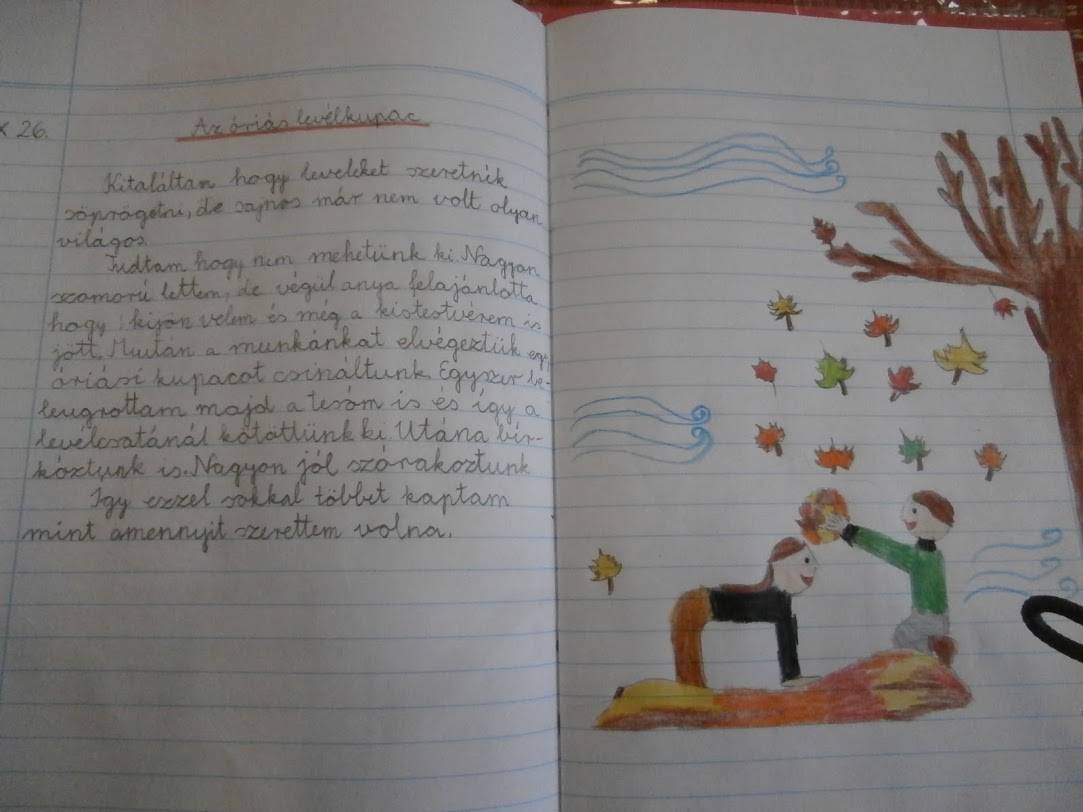 X 26.
Az óriás levélkupac
Kitaláltam hogy leveleket szeretnék
söprögetni, de sajnos már nem volt olyan
világos.
Tudtam hogy nem mehetünk ki. Nagyon
szomorú lettem, de végül anya felajánlotta
hogy kijön velem és még a kistestvérem is
jött. Miután a munkánkat elvégeztük egy
óriási kupacot csináltunk. Egyszer be-
leugrottam majd a tesóm is és így a
levélcsatánál kötöttünk ki. Utána bír-
kóztunk is. Nagyon jól szórakoztunk
Igy ezzel sokkal többet kaptam
mint amennyit szerettem volna.